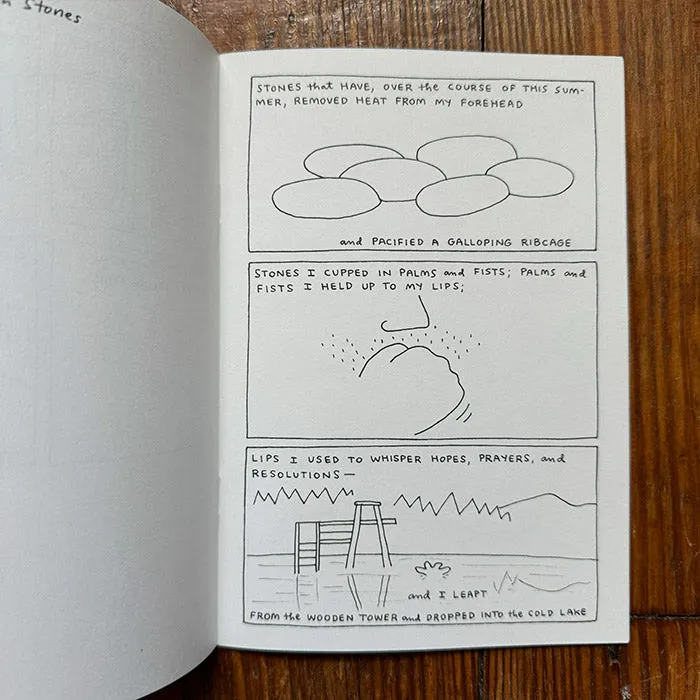 Stones
STONES that HAVE, OVER the COURSE OF THIS SUM-
MER, REMOVED HEAT FROM MY FOREHEAD
and PACIFIED A GALLOPING RIBCAGE
STONES I CUPPED IN PALMS and FISTS; PALMS and
FISTS I HELD UP TO MY LIPS;
LIPS I USED TO WHISPER HOPES, PRAYERS, and
RESOLUTIONS—
and I LEAPT
FROM the WOODEN TOWER and DROPPED INTO the COLD LAKE